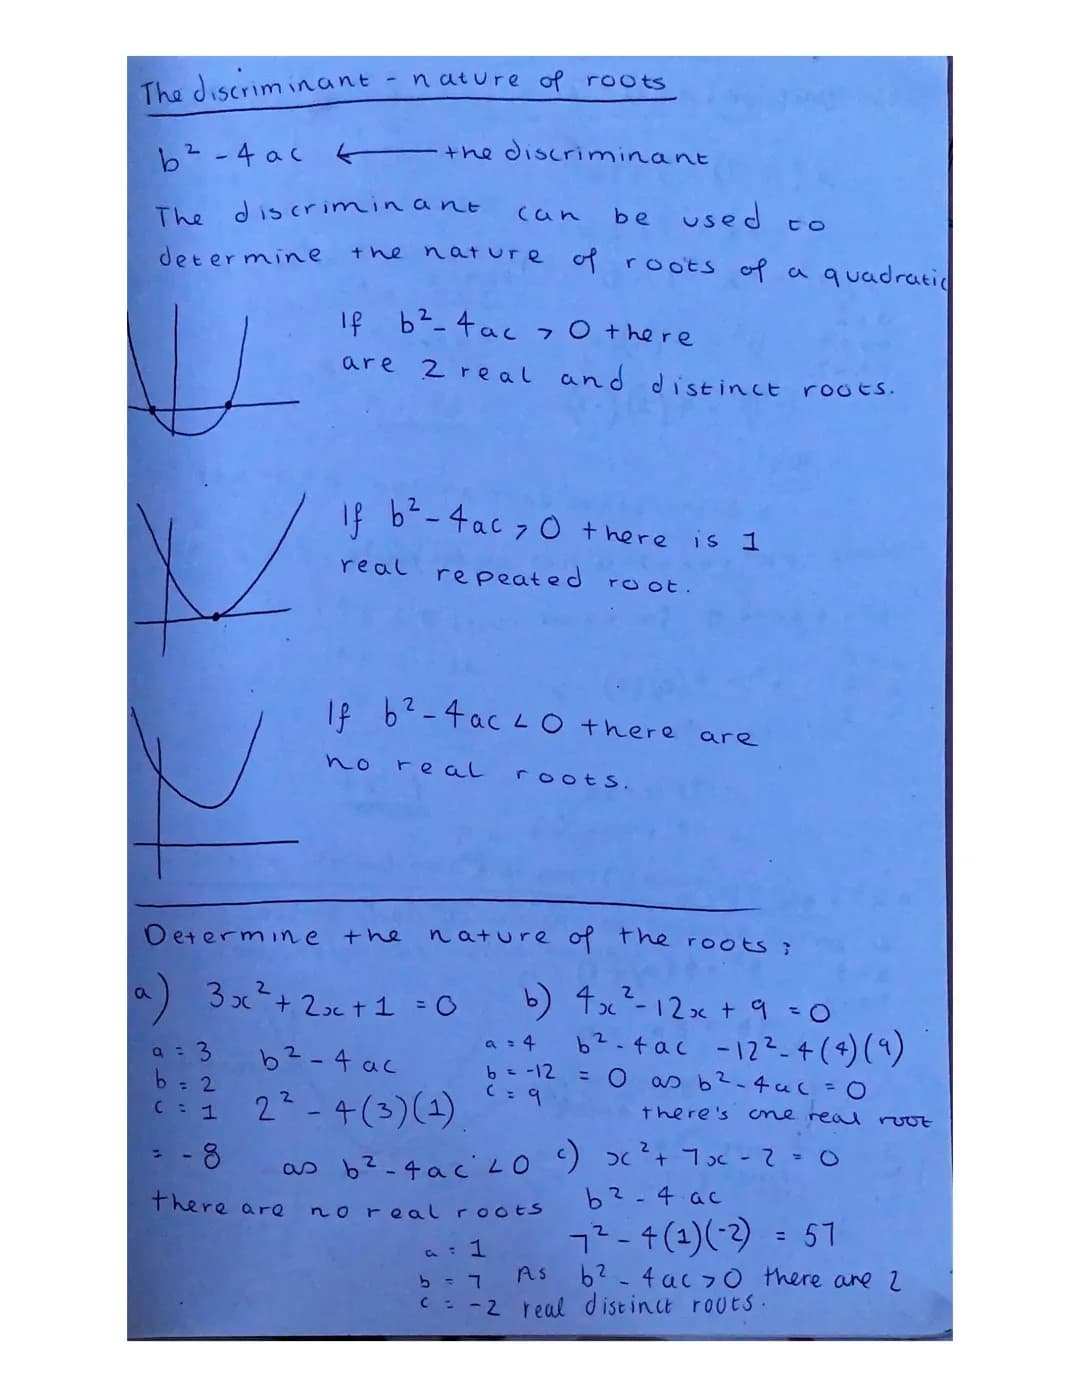 The discriminant - nature of roots
b² - 4ac ← the discriminant
The discriminant can be used to
determine the nature of roots of a quadratic
If b² - 4ac > 0 there
are 2 real and distinct roots.
If b² - 4ac > 0 there is 1
real repeated root.
If b² - 4ac < 0 there are
no real roots.
Determine the nature of the roots:
a) 3x² + 2x + 1 = 0
a = 3
b = 2
c = 1
b² - 4ac
2² - 4(3)(1)
= -8 as b² - 4ac < 0
there are no real roots
b) 4x² - 12x + 9 = 0
a = 4
b = -12
c = 9
b² - 4ac -12² - 4(4)(9)
= 0 as b² - 4ac = 0
there's one real root
c) x² + 7x - 2 = 0
b² - 4ac
7² - 4(1)(-2) = 57
a = 1
b = 7
c = -2
As b² - 4ac > 0 there are 2
real distinct roots.